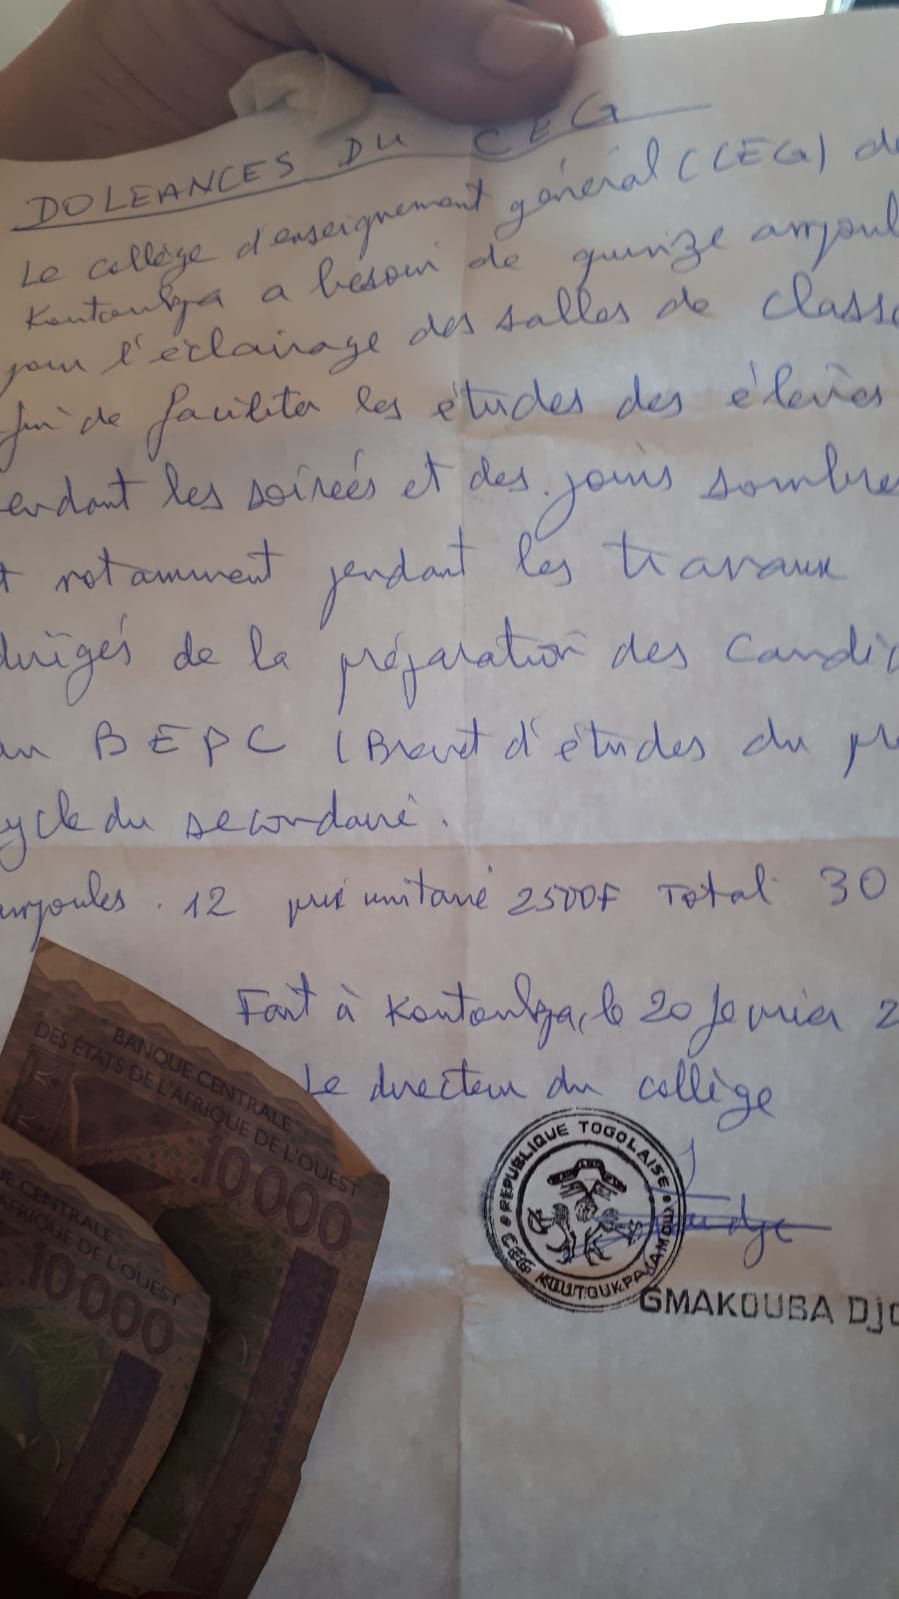 DOLEANCES DU CEG
Le collège d'enseignement général (CEG) de
a besoin de quinze ampoul
pour l'éclairage des salles de classe
fin de faciliter les études des élèves
endant les soirées et des jours sombre
t notamment pendant les travaux
dirigés de la préparation des candid
au BEPC (Brevet d'études du pr
ycle du secondaire.
ampoules. 12 prix unitaire 2500F Total 30
Fait à le 20 fevrier 2
Le directeur du collège
REPUBLIQUE TOGOLAISE
CEG
GMAKOUBA Djo
BANQUE CENTRALE
DES ÉTATS DE L'AFRIQUE DE L'OUEST
10000
UE CENTRALE
AFRIQUE DE L'OUEST
10000